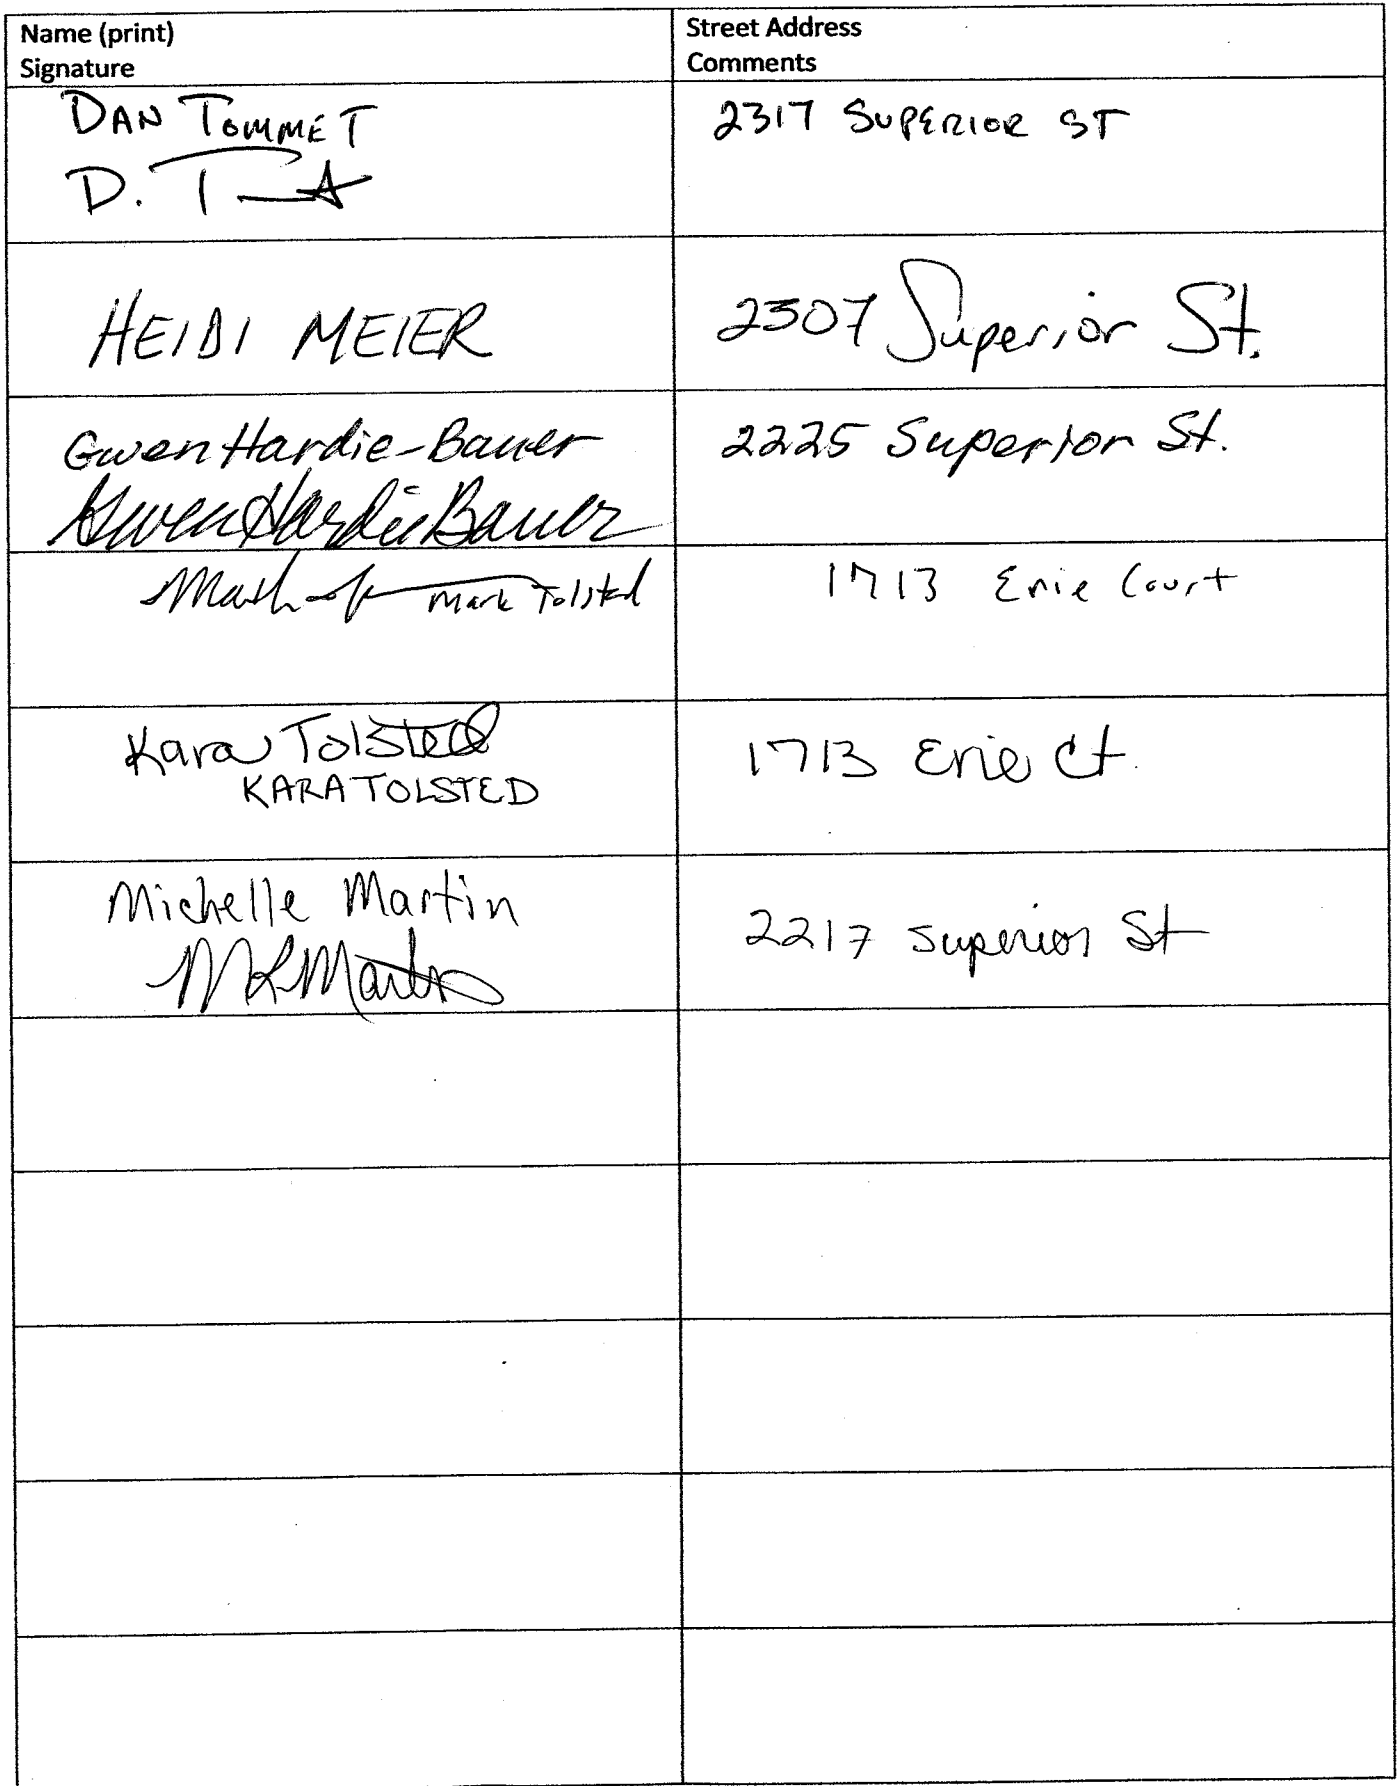 Name (print)
Signature
Street Address
Comments
DAN TOMMET
D. T
2317 SUPERIOR ST
HEIDI MEIER
2307 Superior St.
Gwen Hardie-Bauer
Gwen Hardie Bauer
2225 Superior St.
Mark Tolsted
1713 Erie Court
Kara Tolsted
KARA TOLSTED
1713 Erie Ct.
Michelle Martin
MLMartin
2217 Superior St